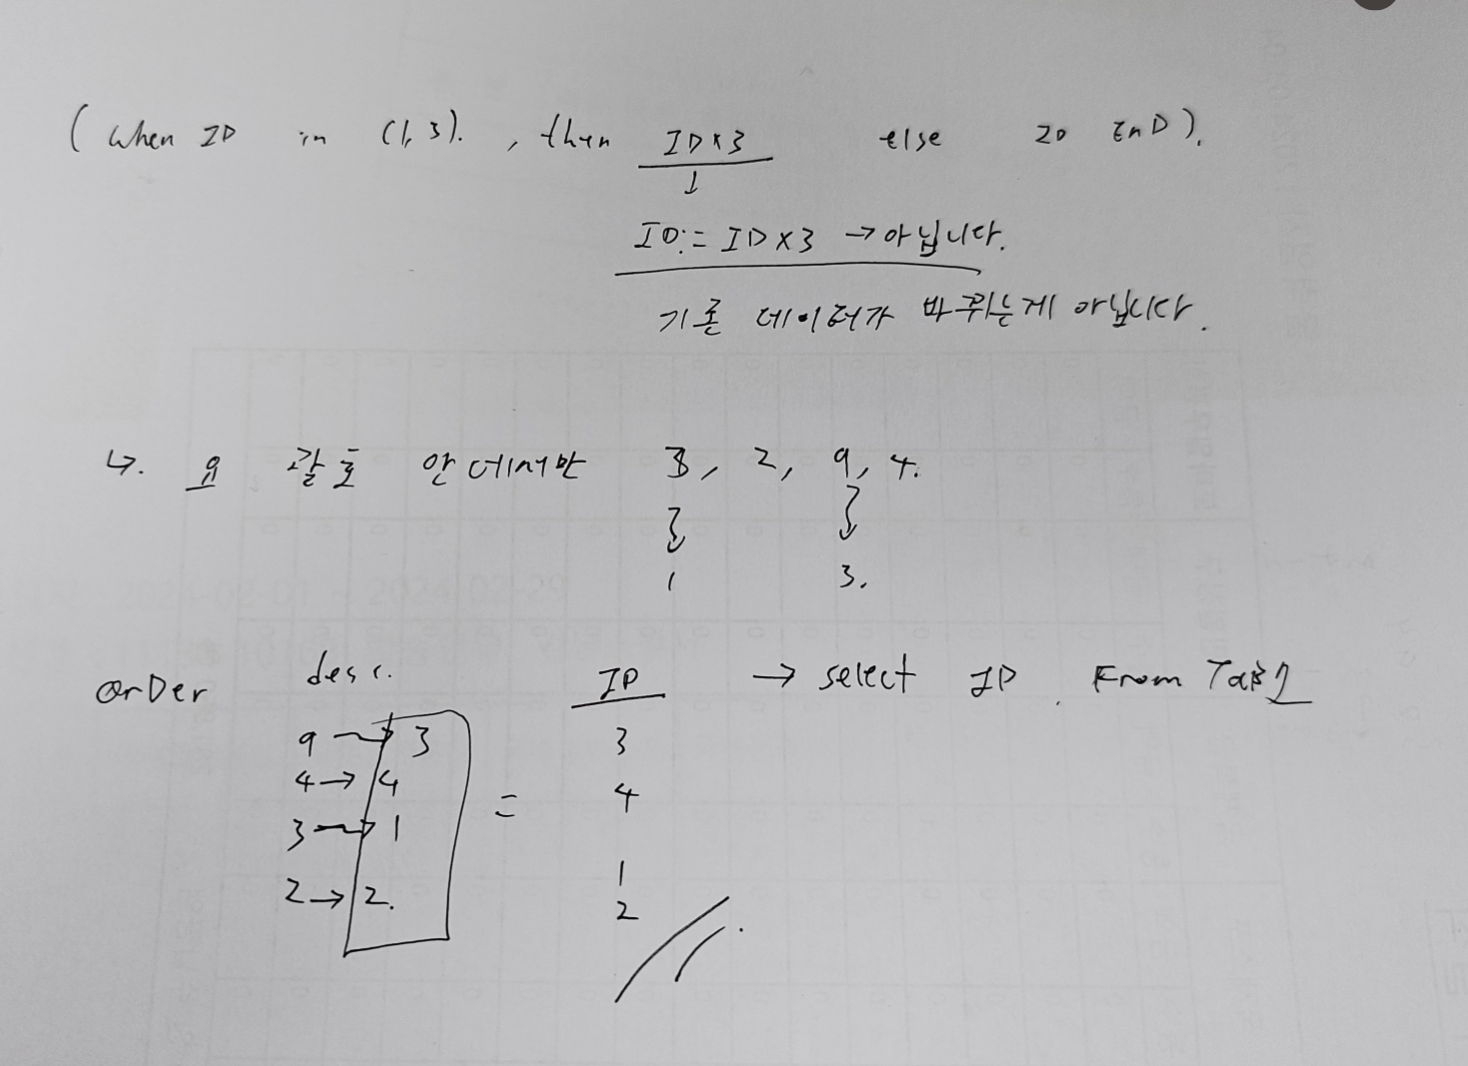 ( When ID in (1, 3). , then ID×3 else ID EnD ).
↓
ID := ID×3 → 아닙니다.
기존 데이터가 바뀌는게 아닙니다.
↳. 요 괄호 안에서만 3, 2, 9, 4.
1 3.
orDer desc. ID → select ID From Tab1
9 → 3 3
4 → 4 = 4
3 → 1 1
2 → 2. 2